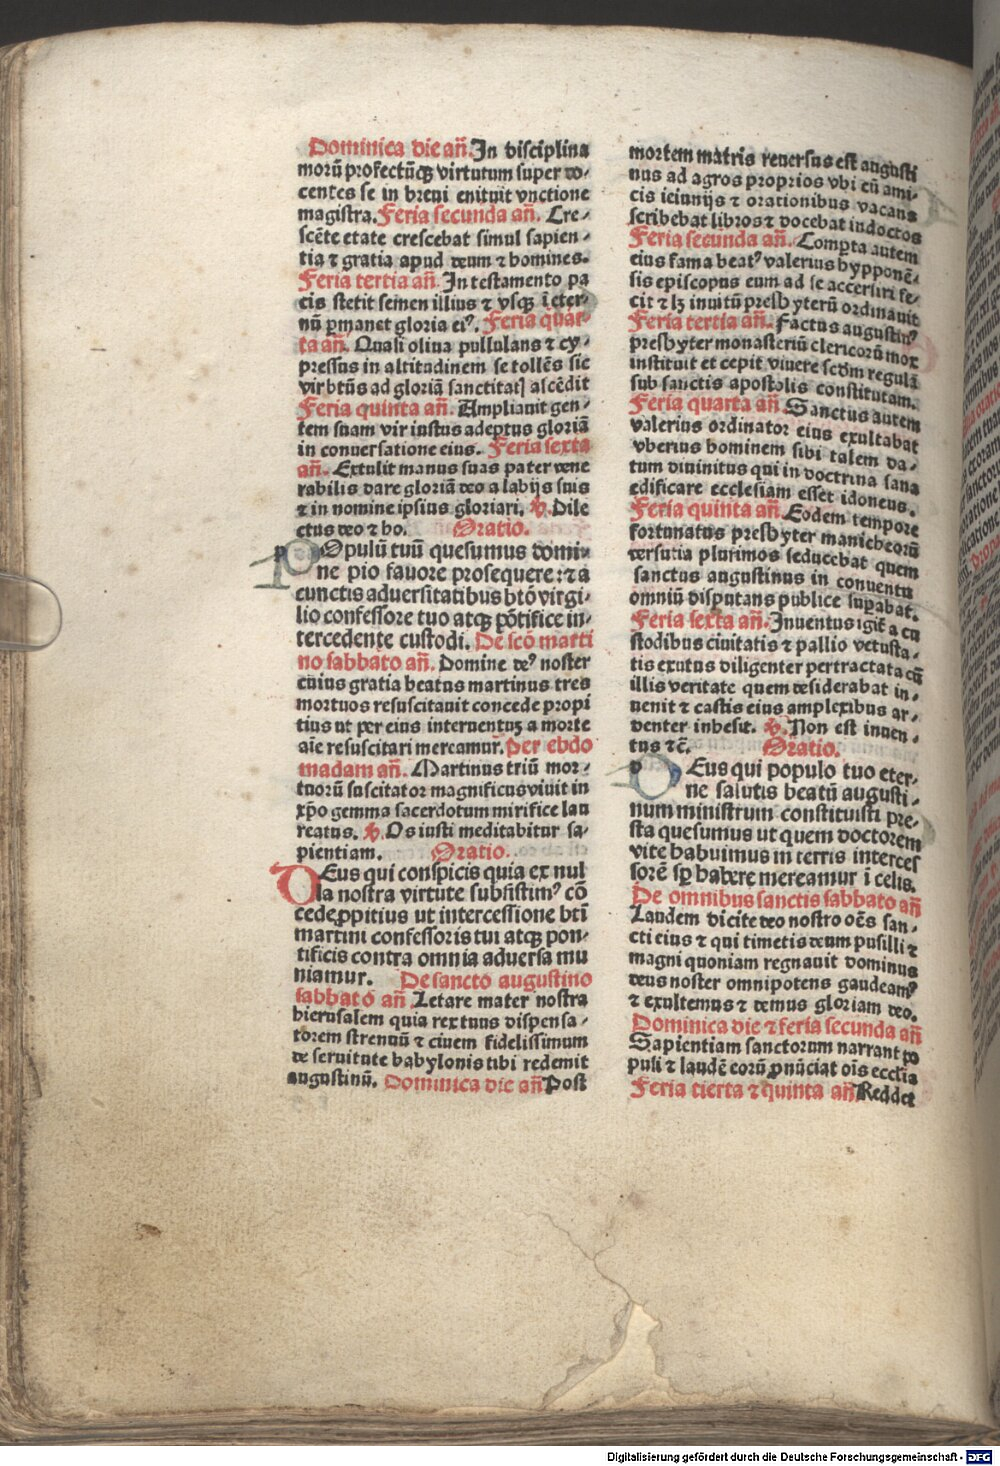 Dominica die añ. In disciplina
morũ profectũqꝫ virtutum super do-
centes se in breui enituit vnctione
magistra. Feria secunda añ. Cre-
scẽte etate crescebat simul sapien-
tia ⁊ gratia apud deum ⁊ homines.
Feria tertia añ. In testamento pa
cis stetit semen illius ⁊ vsqꝫ i eter-
nũ ꝑmanet gloria eiꝰ. Feria quar
ta añ. Quasi oliua pullulans ⁊ cy-
pressus in altitudinem se tollẽs sic
vir btũs ad gloriã sanctitatꝭ ascẽdit
Feria quinta añ. Ampliauit gen-
tem suam vir iustus adeptus gloriã
in conuersatione eius. Feria sexta
añ. Extulit manus suas pater vene
rabilis dare gloriã deo a labijs suis
⁊ in nomine ipsius gloriari. ℣. Dile
ctus deo ⁊ ho. Oratio.
POpulũ tuũ quesumus domi-
ne pio fauore prosequere: ⁊ a
cunctis aduersitatibus btõ virgi-
lio confessore tuo atqꝫ põtifice in-
tercedente custodi. De scõ marti
no sabbato añ. Domine deꝰ noster
cuius gratia beatus martinus tres
mortuos resuscitauit concede propi
tius ut per eius interuentuꝫ a morte
aĩe resuscitari mereamur. Per ebdo
madam añ. Martinus triũ mor-
tuorũ suscitator magnificus viuit in
xp̃o gemma sacerdotum mirifice lau
reatus. ℣. Os iusti meditabitur sa-
pientiam. Oratio.
DEus qui conspicis quia ex nul
la nostra virtute subsistimꝰ cõ
cede ꝓpitius ut intercessione bti
martini confessoris tui atqꝫ pon-
tificis contra omnia aduersa mu
niamur. De sancto augustino
sabbato añ Letare mater nostra
hierusalem quia rex tuus dispensa-
torem strenuũ ⁊ ciuem fidelissimum
de seruitute babylonis tibi redemit
augustinũ. Dominica die añ Post
mortem matris reuersus est augusti
nus ad agros proprios vbi cũ ami-
cis ieiunijs ⁊ orationibus vacans
scribebat libros ⁊ docebat indoctos
Feria secunda añ. Compta autem
eius fama beatꝰ valerius hypponẽ-
sis episcopus eum ad se accersiri fe-
cit ⁊ lꝫ inuitũ presbyterũ ordinauit
Feria tertia añ. Factus augustinꝰ
presbyter monasteriũ clericorũ mox
instituit et cepit viuere scdm regulã
sub sanctis apostolis constitutam.
Feria quarta añ. Sanctus autem
valerius ordinator eius exultabat
vberius hominem sibi talem da-
tum diuinitus qui in doctrina sana
edificare ecclesiam esset idoneus.
Feria quinta añ. Eodem tempore
fortunatus presbyter manicheorũ
versutia plurimos seducebat quem
sanctus augustinus in conuentu
omniũ disputans publice suꝑabat.
Feria sexta añ. Inuentus igit᷑ a cu
stodibus ciuitatis ⁊ pallio vetusta-
tis exutus diligenter pertractata cũ
illis veritate quem desiderabat in-
uenit ⁊ castis eius amplexibus ar-
denter inhesit. ℣. Non est inuen-
tus ⁊c̃. Oratio.
DEus qui populo tuo eter-
ne salutis beatũ augusti-
num ministrum constituisti pre-
sta quesumus ut quem doctorem
vite habuimus in terris interces
sorẽ sꝑ habere mereamur i celis.
De omnibus sanctis sabbato añ
Laudem dicite deo nostro oẽs san-
cti eius ⁊ qui timetis deum pusilli ⁊
magni quoniam regnauit dominus
deus noster omnipotens gaudeamꝰ
⁊ exultemus ⁊ demus gloriam deo.
Dominica die ⁊ feria secunda añ
Sapientiam sanctorum narrant po
puli ⁊ laudẽ eorũ ꝓnũciat oĩs ecclĩa
Feria tierta ⁊ quinta añ Reddet
Digitalisierung gefördert durch die Deutsche Forschungsgemeinschaft - DFG